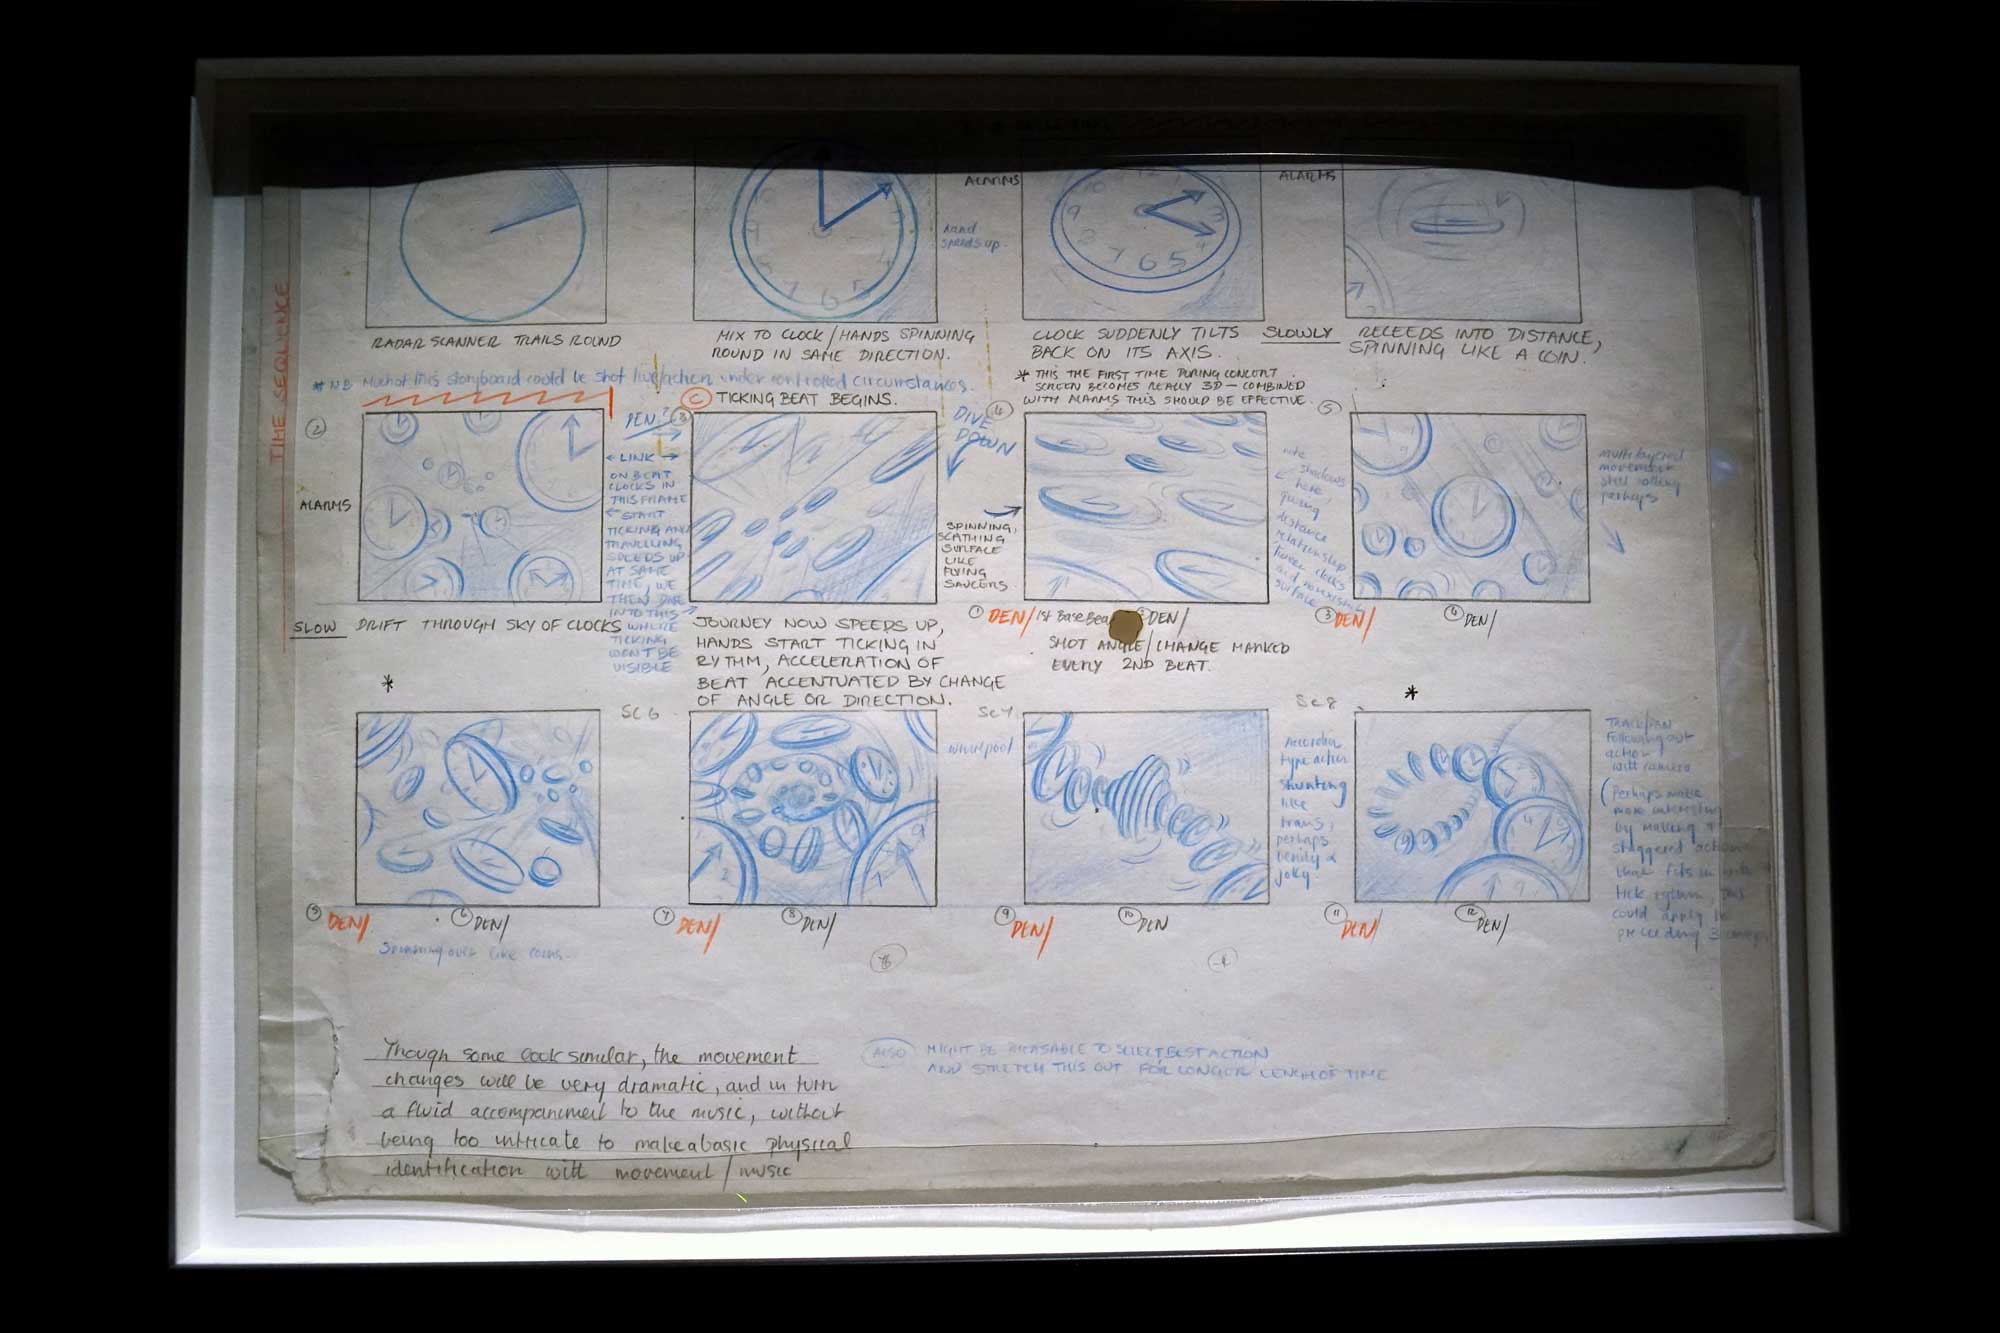 TIME SEQUENCE
ALARMS
ALARMS
hand
speeds up.
RADAR SCANNER TRAILS ROUND
MIX TO CLOCK/HANDS SPINNING
ROUND IN SAME DIRECTION.
CLOCK SUDDENLY TILTS
BACK ON ITS AXIS.
SLOWLY RECEEDS INTO DISTANCE,
SPINNING LIKE A COIN.
* THIS THE FIRST TIME DURING CONCERT
SCREEN BECOMES REALLY 3D — COMBINED
WITH ALARMS THIS SHOULD BE EFFECTIVE.
* NB Much of this storyboard could be shot live/action under controlled circumstances.
C TICKING BEAT BEGINS.
2
ALARMS
DEN?
← LINK →
ON BEAT
CLOCKS IN
THIS FRAME
← START
TICKING AND
TRAVELLING
SPEEDS UP
AT SAME
TIME, WE
THEN DIVE
INTO THIS
WHERE
TICKING
WON'T BE
VISIBLE
3
DIVE
DOWN
SPINNING,
SCATHING
SURFACE
LIKE
FLYING
SAUCERS.
4
note
shadows
here,
giving
distance
relationship
clocks
and
surface
5
multi layered
movement
still rolling
perhaps
SLOW DRIFT THROUGH SKY OF CLOCKS
JOURNEY NOW SPEEDS UP,
HANDS START TICKING IN
RYTHM, ACCELERATION OF
BEAT ACCENTUATED BY CHANGE
OF ANGLE OR DIRECTION.
1 DEN/ 1st Base Bea DEN/
SHOT ANGLE/CHANGE MARKED
EVERY 2ND BEAT.
3 DEN/ 4 DEN/
*
Sc 6
Sc 7
whirlpool
Sc 8
Accordion
type action
shunting
like
trains,
perhaps
bendy &
joky.
*
TRACK/PAN
Following our
action
with camera
(Perhaps make
more interesting
by making
staggered action
that fits in with
tick rythm, this
could apply to
preceeding 3
5 DEN/ 6 DEN/
7 DEN/ 8 DEN/
9 DEN/ 10 DEN
11 DEN/ 12 DEN/
Spinning over like coins.
Though some look similar, the movement
changes will be very dramatic, and in turn
a fluid accompaniment to the music, without
being too intricate to make a basic physical
identification with movement / music
ALSO MIGHT BE TO SELECT BEST ACTION
AND STRETCH THIS OUT FOR LONGER LENGTH OF TIME